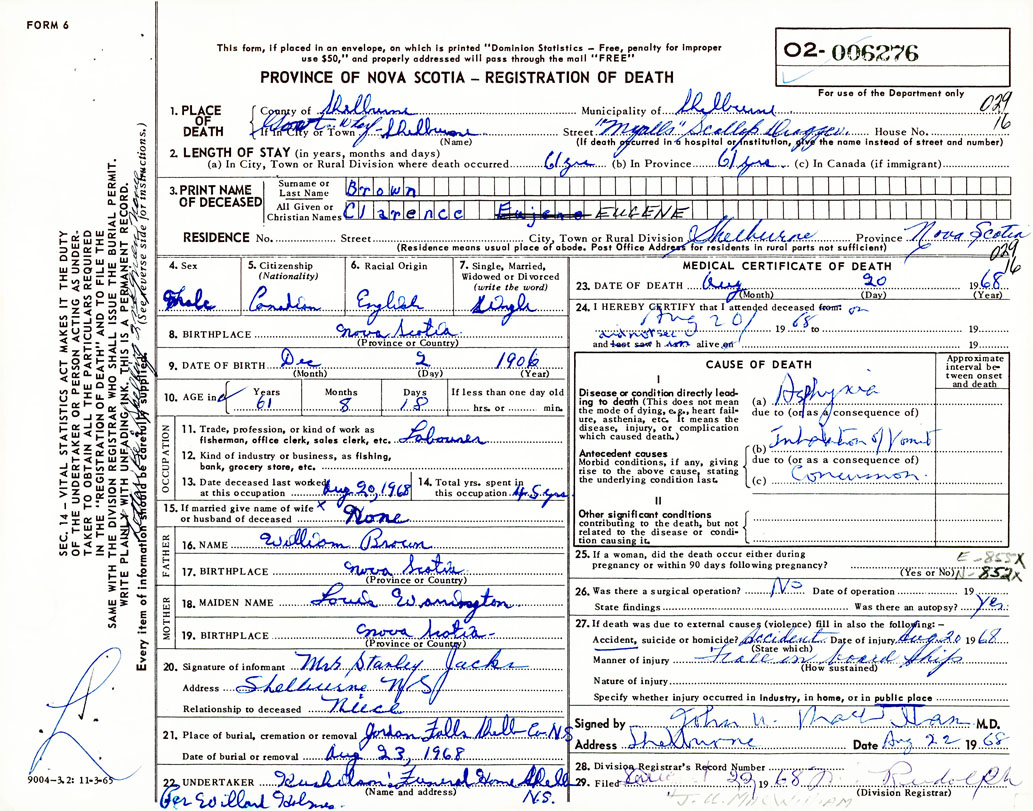 FORM 6
This form, if placed in an envelope, on which is printed "Dominion Statistics – Free, penalty for improper
use $50," and properly addressed will pass through the mail "FREE"
PROVINCE OF NOVA SCOTIA – REGISTRATION OF DEATH
02- 006276
For use of the Department only
029
16
1. PLACE OF DEATH
County of Shelburne Municipality of Shelburne
If in City or Town Shelburne Street "Myalls" Scallop Dragger House No.
(Name) (If death occurred in a hospital or institution, give the name instead of street and number)
2. LENGTH OF STAY (in years, months and days)
(a) In City, Town or Rural Division where death occurred 61 yrs (b) In Province 61 yrs (c) In Canada (if immigrant)
3. PRINT NAME OF DECEASED
Surname or Last Name Brown
All Given or Christian Names Clarence Eugene EUGENE
RESIDENCE No. Street City, Town or Rural Division Shelburne Province Nova Scotia
(Residence means usual place of abode. Post Office Address for residents in rural parts not sufficient)
029
16
4. Sex Male
5. Citizenship (Nationality) Canadian
6. Racial Origin English
7. Single, Married, Widowed or Divorced (write the word) Single
8. BIRTHPLACE Nova Scotia
(Province or Country)
9. DATE OF BIRTH Dec 2 1906
(Month) (Day) (Year)
10. AGE in Years 61 Months 8 Days 18 If less than one day old hrs. or min.
OCCUPATION
11. Trade, profession, or kind of work as fisherman, office clerk, sales clerk, etc. Labourer
12. Kind of industry or business, as fishing, bank, grocery store, etc.
13. Date deceased last worked at this occupation Aug 20, 1968
14. Total yrs. spent in this occupation 45 yrs
15. If married give name of wife or husband of deceased x None
FATHER
16. NAME William Brown
17. BIRTHPLACE Nova Scotia
(Province or Country)
MOTHER
18. MAIDEN NAME
19. BIRTHPLACE Nova Scotia
(Province or Country)
20. Signature of informant Mrs Stanley Jacks
Address Shelburne N/S
Relationship to deceased Niece
21. Place of burial, cremation or removal Jordan Falls Shelb Co. NS
Date of burial or removal Aug 23, 1968
22. UNDERTAKER Funeral Home Shelb
(Name and address) N.S.
Per Willard Holmes
MEDICAL CERTIFICATE OF DEATH
23. DATE OF DEATH Aug 20 1968
(Month) (Day) (Year)
24. I HEREBY CERTIFY that I attended deceased from on
Aug 20 / 1968 to 19
and last saw h im alive on 19
CAUSE OF DEATH
Approximate interval between onset and death
I
Disease or condition directly leading to death (This does not mean the mode of dying, e.g., heart failure, asthenia, etc. It means the disease, injury, or complication which caused death.)
(a) Asphyxia
due to (or as a consequence of)
Antecedent causes
Morbid conditions, if any, giving rise to the above cause, stating the underlying condition last.
(b) Inhalation of Vomit
due to (or as a consequence of)
(c) Concussion
II
Other significant conditions contributing to the death, but not related to the disease or condition causing it.
25. If a woman, did the death occur either during pregnancy or within 90 days following pregnancy?
(Yes or No)
N-852X
26. Was there a surgical operation? No Date of operation 19
State findings Was there an autopsy? Yes.
27. If death was due to external causes (violence) fill in also the following: –
Accident, suicide or homicide? Accident Date of injury Aug 20 1968
(State which)
Manner of injury Fall on board Ship
(How sustained)
Nature of injury
Specify whether injury occurred in Industry, in home, or in public place
Signed by M.D.
Address Shelburne Date Aug 22 1968
28. Division Registrar's Record Number
29. Filed 1968 Rudolph
(Division Registrar)
SEC. 14 – VITAL STATISTICS ACT MAKES IT THE DUTY
OF THE UNDERTAKER OR PERSON ACTING AS UNDERTAKER TO OBTAIN ALL THE PARTICULARS REQUIRED
IN THE "REGISTRATION OF DEATH" AND TO FILE THE
SAME WITH THE DIVISION REGISTRAR WHO SHALL ISSUE THE BURIAL PERMIT.
WRITE PLAINLY WITH UNFADING INK. THIS IS A PERMANENT RECORD.
Every item of information should be carefully supplied. (See reverse side for instructions.)
9004-3.2: 11-3-65